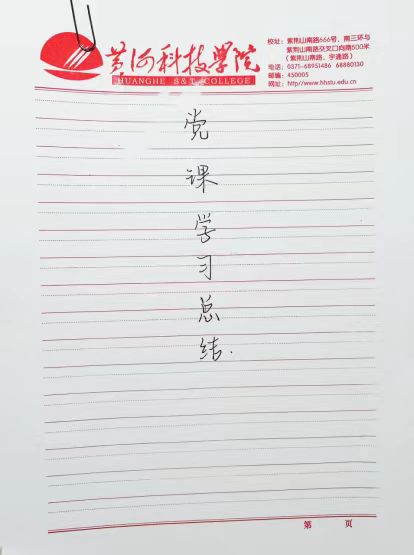 黄河科技学院
HUANGHE S&T COLLEGE
校址：紫荆山南路666号、南三环与
紫荆山南路交叉口向南500米
（紫荆山南路，宇通路）
电话：0371-68951486 68880130
邮编：450005
网址：http//www.hhstu.edu.cn
党
课
学
习
总
结.
第 页